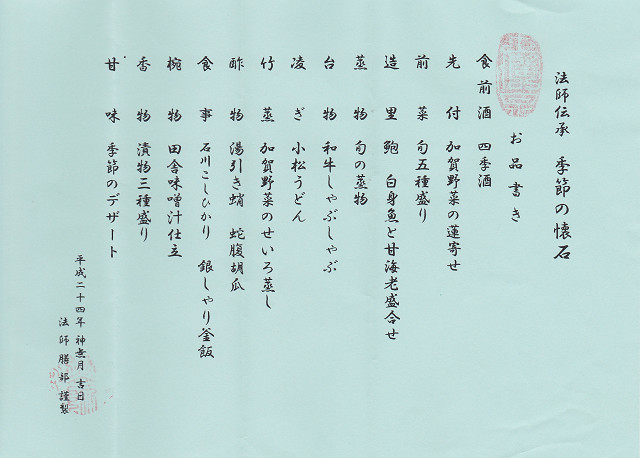 法師伝承 季節の懐石
お品書き
食前酒 四季酒
先付 加賀野菜の蓮寄せ
前菜 旬五種盛り
造里 鮑 白身魚と甘海老盛合せ
蒸物 旬の蒸物
台物 和牛しゃぶしゃぶ
凌ぎ 小松うどん
竹蒸 加賀野菜のせいろ蒸し
酢物 湯引き蛸 蛇腹胡瓜
食事 石川こしひかり 銀しゃり釜飯
椀物 田舎味噌汁仕立
香物 漬物三種盛り
甘味 季節のデザート
平成二十四年 神無月 吉日
法師膳部謹製